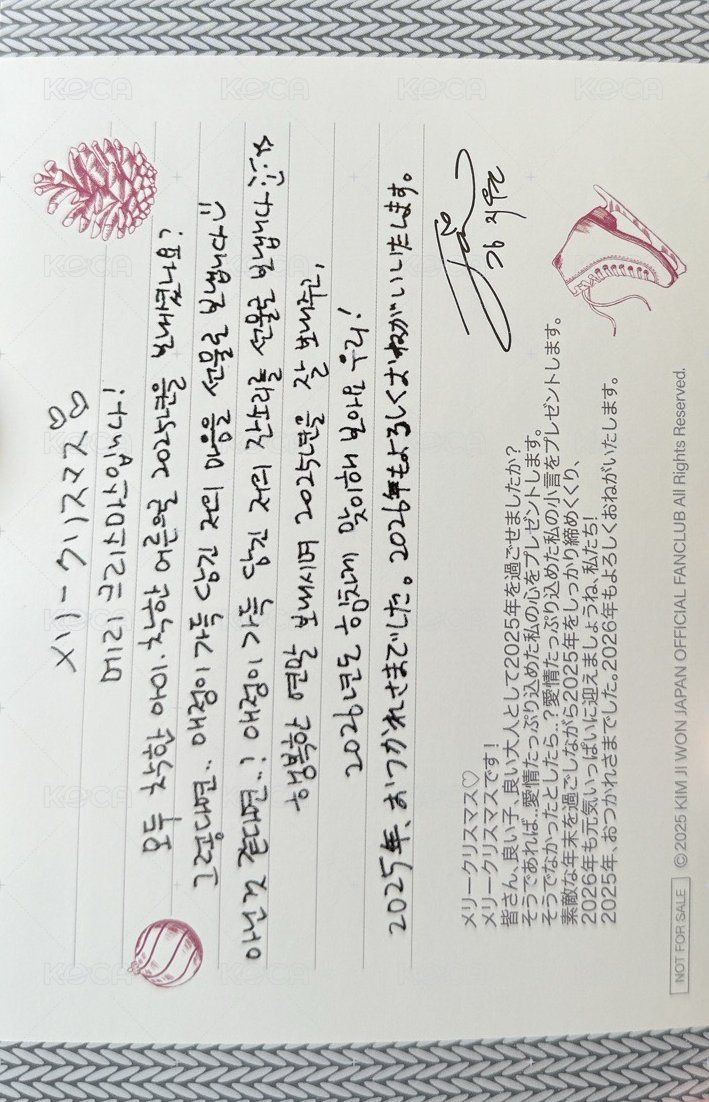 メリークリスマス♡♡
메리크리스마스입니다!
모두 착한 어린이, 착한 어른으로 2025년을 보내셨나요?
그렇다면.. 애정이 가득 담긴 저의 마음을 선물로 보냅니다!!
아니 그렇다면..? 애정이 가득 담긴 저의 잔소리를 선물로 보냅니다:) ☆
행복한 연말을 보내시며 2025년을 잘 마무리하고,
2026년도 힘차게 맞이해 보아요 우리!
2025年、おつかれさまでした。2026年もよろしくおねがいいたします。
김지원
メリークリスマス♡
メリークリスマスです!
皆さん、良い子、良い大人として2025年を過ごせましたか?
そうであれば..愛情たっぷり込めた私の心をプレゼントします。
そうでなかったとしたら..?愛情たっぷり込めた私の小言をプレゼントします。
素敵な年末を過ごしながら2025年をしっかり締めくくり、
2026年も元気いっぱいに迎えましょうね、私たち!
2025年、おつかれさまでした。2026年もよろしくおねがいいたします。
NOT FOR SALE
© 2025 KIM JI WON JAPAN OFFICIAL FANCLUB All Rights Reserved.
KOCA